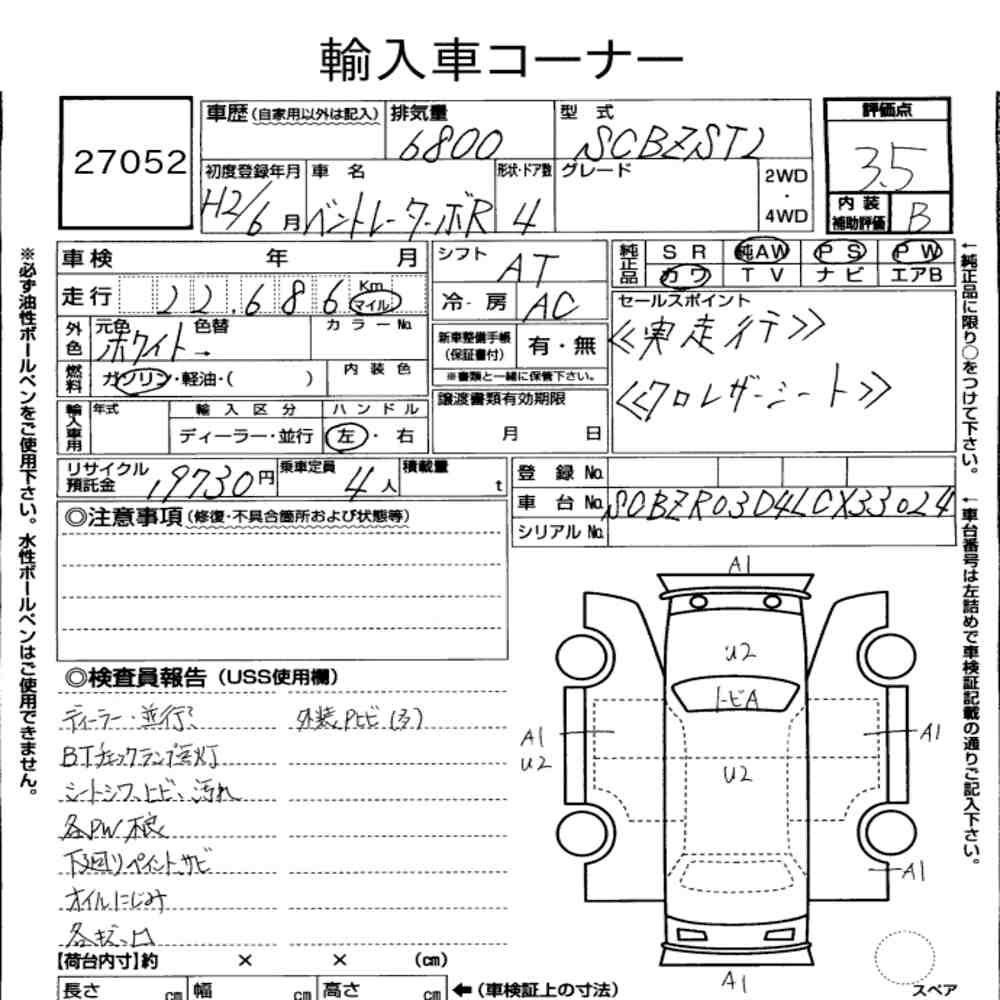 輸入車コーナー
27052
車歴(自家用以外は記入) 排気量 6800 型式 SCBZST2
評価点 3.5
初度登録年月 H2/6月 車名 ベントレーターボR 形状・ドア数 4 グレード 2WD・4WD
内装補助評価 B
車検 年 月
走行 22.686 Km マイル
シフト AT
冷・房 AC
純正品 SR 純AW PS PW
カワ TV ナビ エアB
外色 元色 ホワイト→ 色替 カラーNo.
燃料 ガソリン・軽油・( ) 内装色
新車整備手帳(保証書付) 有・無
※書類と一緒に保管下さい。
セールスポイント
≪実走行≫
≪クロレザーシート≫
輸入車用 年式 輸入区分 ディーラー・並行 ハンドル 左・右
譲渡書類有効期限 月 日
リサイクル預託金 19730円 乗車定員 4人 積載量 t
登録No.
車台No. SCBZR03D4LCX33024
シリアルNo.
◎注意事項(修復・不具合箇所および状態等)
◎検査員報告(USS使用欄)
ディーラー・並行? 外装Pヒビ(ろ)
BTチェックランプ点灯
シートシワ、ヒビ、汚れ
各PW不良
下廻りペイント、サビ
オイルにじみ
各キズ・凹
A1
U2
トビA
A1
U2
U2
A1
A1
A1
スペア
【荷台内寸】約 × × (cm)
長さ cm 幅 cm 高さ cm ←(車検証上の寸法)
※必ず油性ボールペンをご使用下さい。水性ボールペンはご使用できません。
←純正品に限り○をつけて下さい。
←車台番号は左詰めで車検証記載の通りご記入下さい。